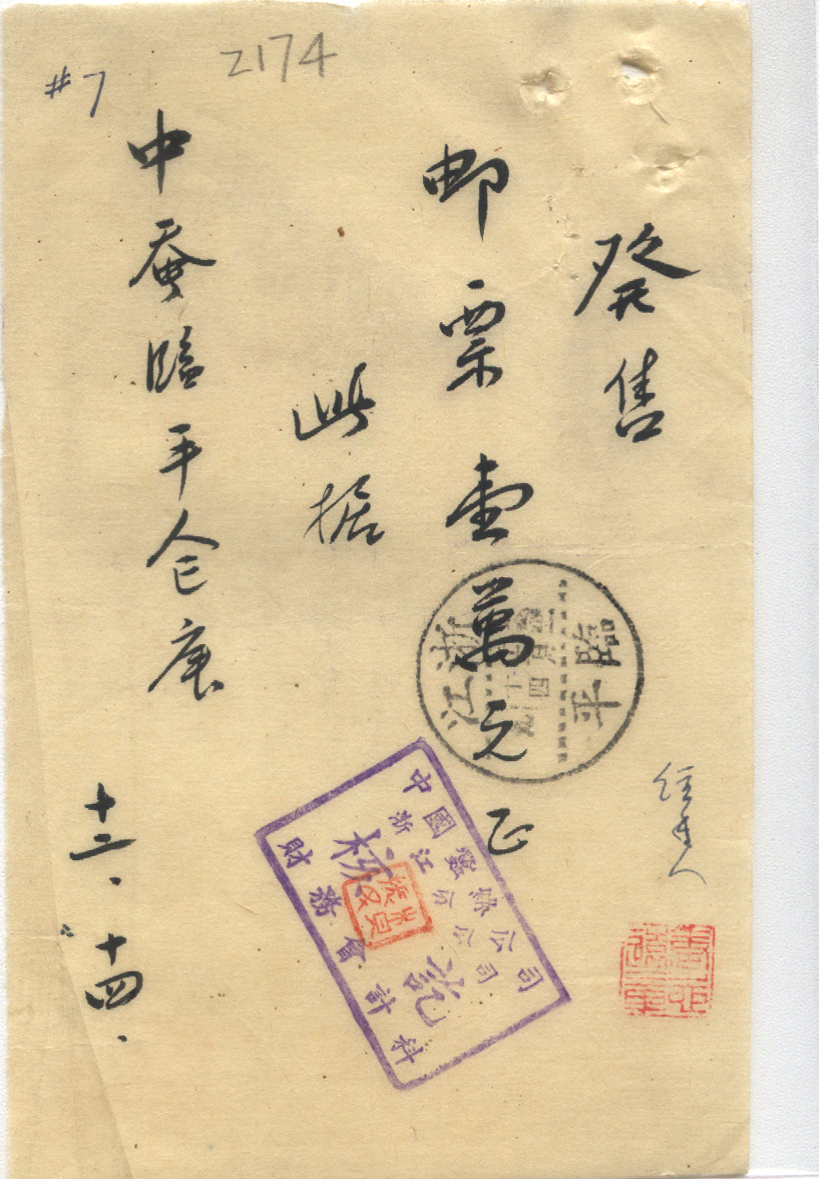 #7
2174
発售
邮票壹萬元正
此据
中蚕臨平仓库
十二.十四.
經手人
臨平
浙江
中國蠶絲公司
浙江分公司
財務會計科